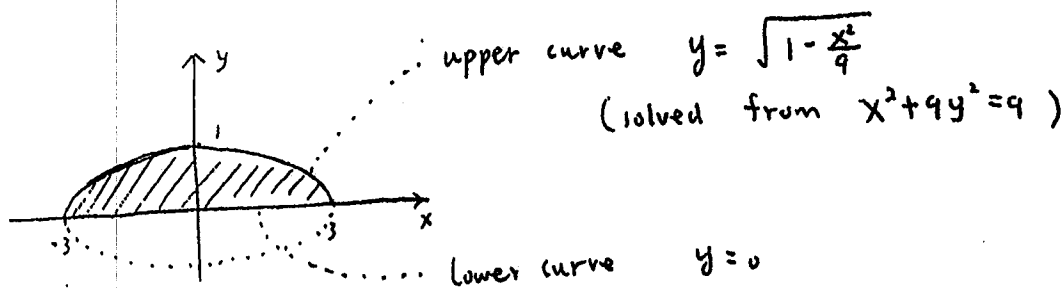 y
upper curve y = √(1 - x²/9)
(solved from x²+9y²=9)
1
-3
3
x
lower curve y=0